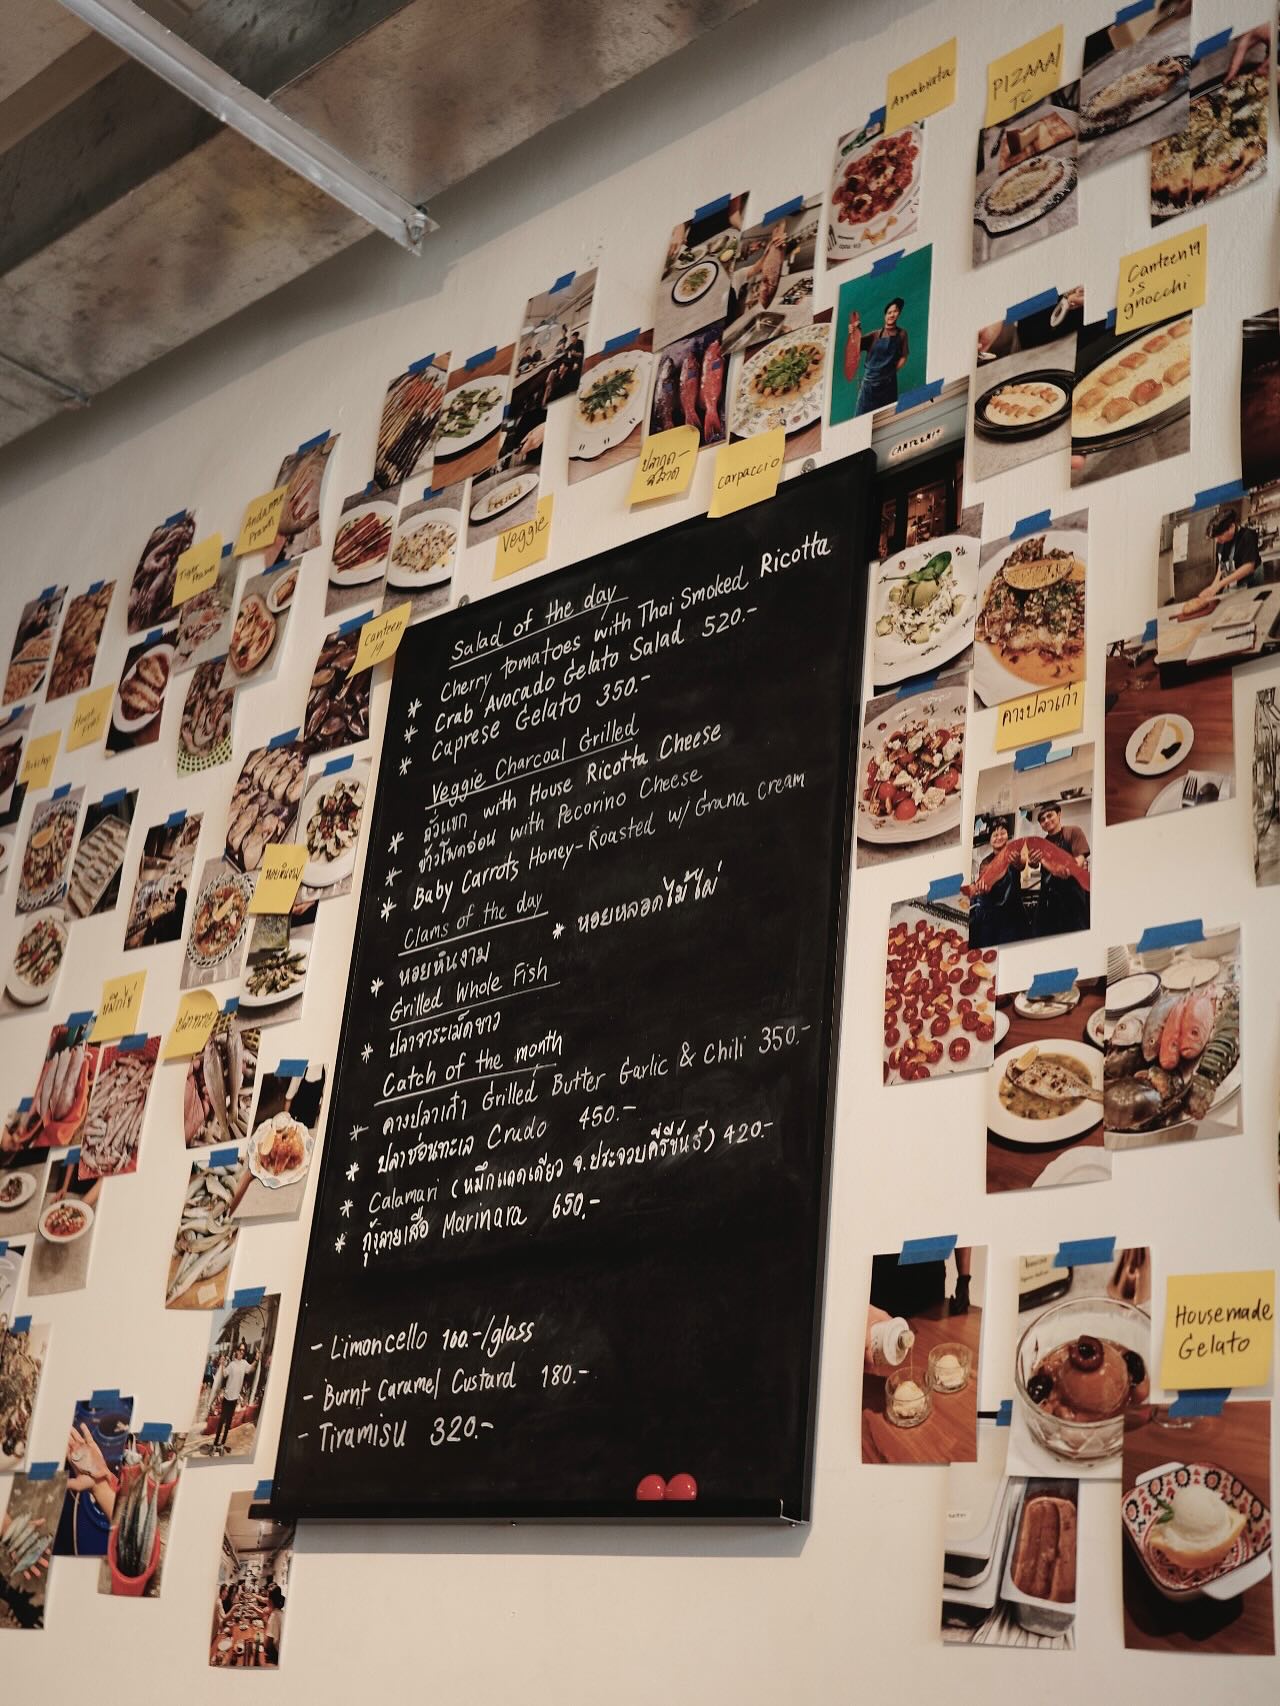 Salad of the day
* Cherry tomatoes with Thai Smoked Ricotta
* Crab Avocado Gelato Salad 520.-
* Caprese Gelato 350.-
Veggie Charcoal Grilled
* ถั่วแขก with House Ricotta Cheese
* ข้าวโพดอ่อน with Pecorino Cheese
* Baby Carrots Honey-Roasted w/ Grana cream
Clams of the day
* หอยหินงาม * หอยหลอดไม้ไผ่
Grilled Whole Fish
* ปลาจาระเม็ดขาว
Catch of the month
* คางปลาเก๋า Grilled Butter Garlic & Chili 350.-
* ปลาช่อนทะเล Crudo 450.-
* Calamari (หมึกแดดเดียว จ.ประจวบคีรีขันธ์) 420.-
* กุ้งลายเสือ Marinara 650.-
- Limoncello 160.-/glass
- Burnt Caramel Custard 180.-
- Tiramisu 320.-
Arrabiata
PIZAAA!
TC
Canteen19
's
gnocchi
carpaccio
Veggie
Andaman
Prawn
Tiger
Prawn
Canteen
19
CANTEEN19
คางปลาเก๋า
หอยหินงาม
หมึกไข่
Housemade
Gelato